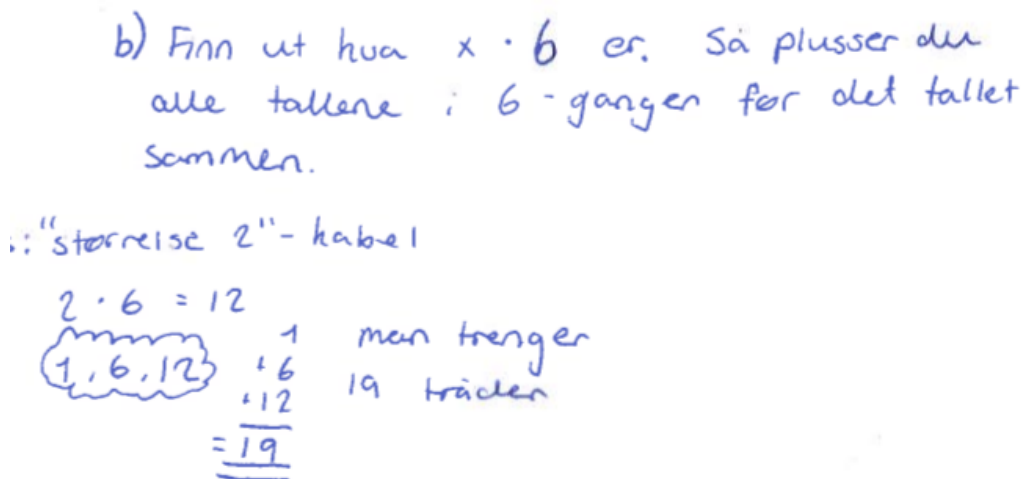 b) Finn ut hva x · 6 er. Så plusser du
alle tallene i 6-gangen før det tallet
sammen.
.: "størrelse 2"-kabel
2 · 6 = 12
1, 6, 12
1
+6
+12
= 19
man trenger
19 tråder